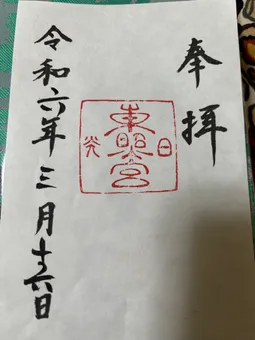 奉拝
日光
東照宮
令和六年三月十六日